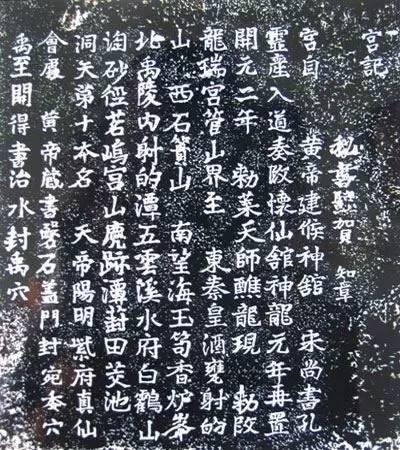 宮記
秘書監賀 知章
宮自 黃帝建候神舘 宋尚書孔
靈産入道奏改懷仙舘神龍元年再置
開元二年 勑葉天師醮龍現 勑改
龍瑞宮管山界至 東秦皇酒甕射的
山 西石簣山 南望海玉笥香炉峯
北禹陵内射的潭五雲溪水府白鶴山
淘砂徑茗塢宮山鹿跡潭葑田茭池
洞天第十本名 天帝陽明紫府真仙
會處 黄帝藏書磐石盖門封宛委穴
禹至開得書治水封禹穴